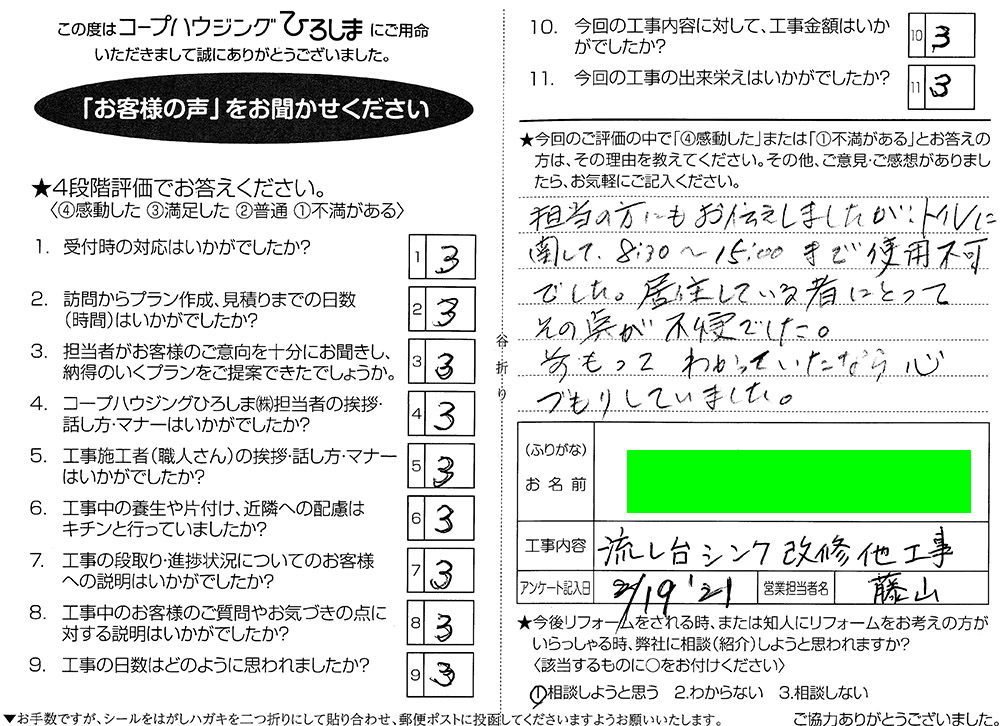 この度はコープハウジングひろしまにご用命
いただきまして誠にありがとうございました。
「お客様の声」をお聞かせください
★4段階評価でお答えください。
〈④感動した ③満足した ②普通 ①不満がある〉
1. 受付時の対応はいかがでしたか?
1 3
2. 訪問からプラン作成、見積りまでの日数
(時間)はいかがでしたか?
2 3
3. 担当者がお客様のご意向を十分にお聞きし、
納得のいくプランをご提案できたでしょうか。
3 3
4. コープハウジングひろしま㈱担当者の挨拶・
話し方・マナーはいかがでしたか?
4 3
5. 工事施工者(職人さん)の挨拶・話し方・マナー
はいかがでしたか?
5 3
6. 工事中の養生や片付け、近隣への配慮は
キチンと行っていましたか?
6 3
7. 工事の段取り・進捗状況についてのお客様
への説明はいかがでしたか?
7 3
8. 工事中のお客様のご質問やお気づきの点に
対する説明はいかがでしたか?
8 3
9. 工事の日数はどのように思われましたか?
9 3
谷折り
10. 今回の工事内容に対して、工事金額はいか
がでしたか?
10 3
11. 今回の工事の出来栄えはいかがでしたか?
11 3
★今回のご評価の中で「④感動した」または「①不満がある」とお答えの
方は、その理由を教えてください。その他、ご意見・ご感想がありまし
たら、お気軽にご記入ください。
担当の方にもお伝えしましたが、トイレに
関して、8:30〜15:00 まで使用不可
でした。居住している者にとって
その点が不便でした。
前もってわかっていたなら心
づもりしていました。
(ふりがな)
お名前
工事内容 流し台シンク改修他工事
アンケート記入日 2/19 '21 営業担当者名 藤山
★今後リフォームをされる時、または知人にリフォームをお考えの方が
いらっしゃる時、弊社に相談(紹介)しようと思われますか?
〈該当するものに○をお付けください〉
1.相談しようと思う 2.わからない 3.相談しない
▼お手数ですが、シールをはがしハガキを二つ折りにして貼り合わせ、郵便ポストに投函してくださいますようお願いいたします。
ご協力ありがとうございました。